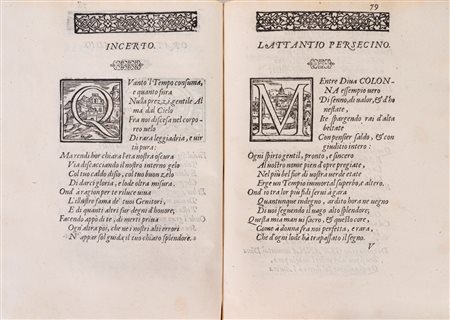 INCERTO.
Q
Vanto'l Tempo consuma,
e quanto fura
Nulla prezzi, gentile Al
ma dal Cielo
Fra noi discesa nel corpo
reo nelo
Di rara leggiadria, e uir
tù pura:
Ma rendi hor chiara l'età nostra oscura
Via distacciando il nostro interno gelo
Col tuo caldo disio, col tuo buon zelo
Di darci gloria, e lode oltra misura.
Ond'à ragion per te riluce uina
L'illustre fama de' tuoi Genitori,
E di quanti altri fur degni d'honore;
Facendo appò di te, di merti priua
Ogn'altra poi, che ne i nostri alti errori
N'appar sol guida, il tuo chiaro splendore.
79
LATTANTIO PERSECINO.
M
Entre Diua COLON-
NA essempio uero
Di senno, di ualor, & d'ho
nestate,
Ite spargendo rai d'alta
beltate
Con pensier saldo, & con
giuditio intero:
Ogni spirto gentil, pronto, e sincero
Al nostro nome pien d'opre pregiate,
Nel piu bel fior di nostra uerde etate
Erge un Tempio immortal superbo, & altero.
Ond'io tirato fra lor piu fidi serui
Quantunque indegno, ardito hora ne uegno
Di uoi segnendo il uago alto splendore;
Questa mia man ui sacro, & questo core,
Come à donna fra noi perfetta, e rara,
Che d'ogni lode hà trapassato il segno.
V